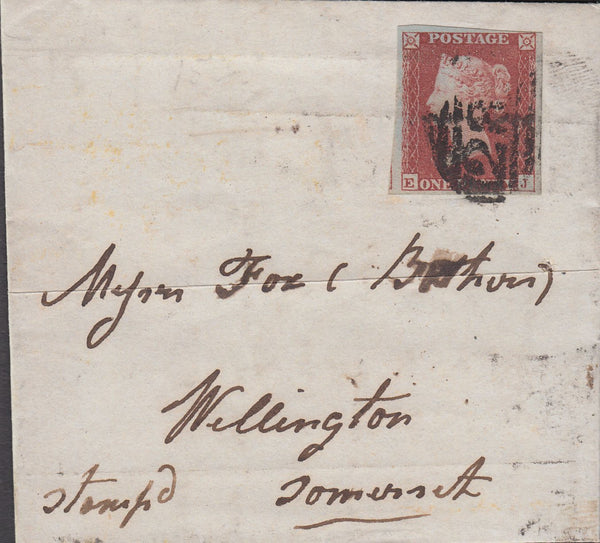 POSTAGE
E ONE J
Messrs Fox (Brothers)
Wellington
stamp'd Somerset